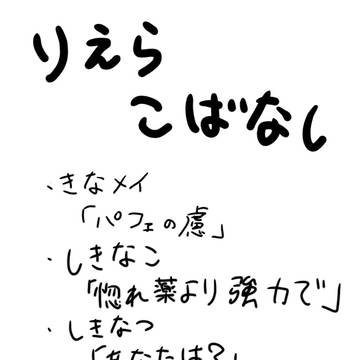 りえら
こばなし
・きなメイ
「パフェの慮」
・しきなこ
「惚れ薬より強力で」
・しきなつ
「あなたは？」